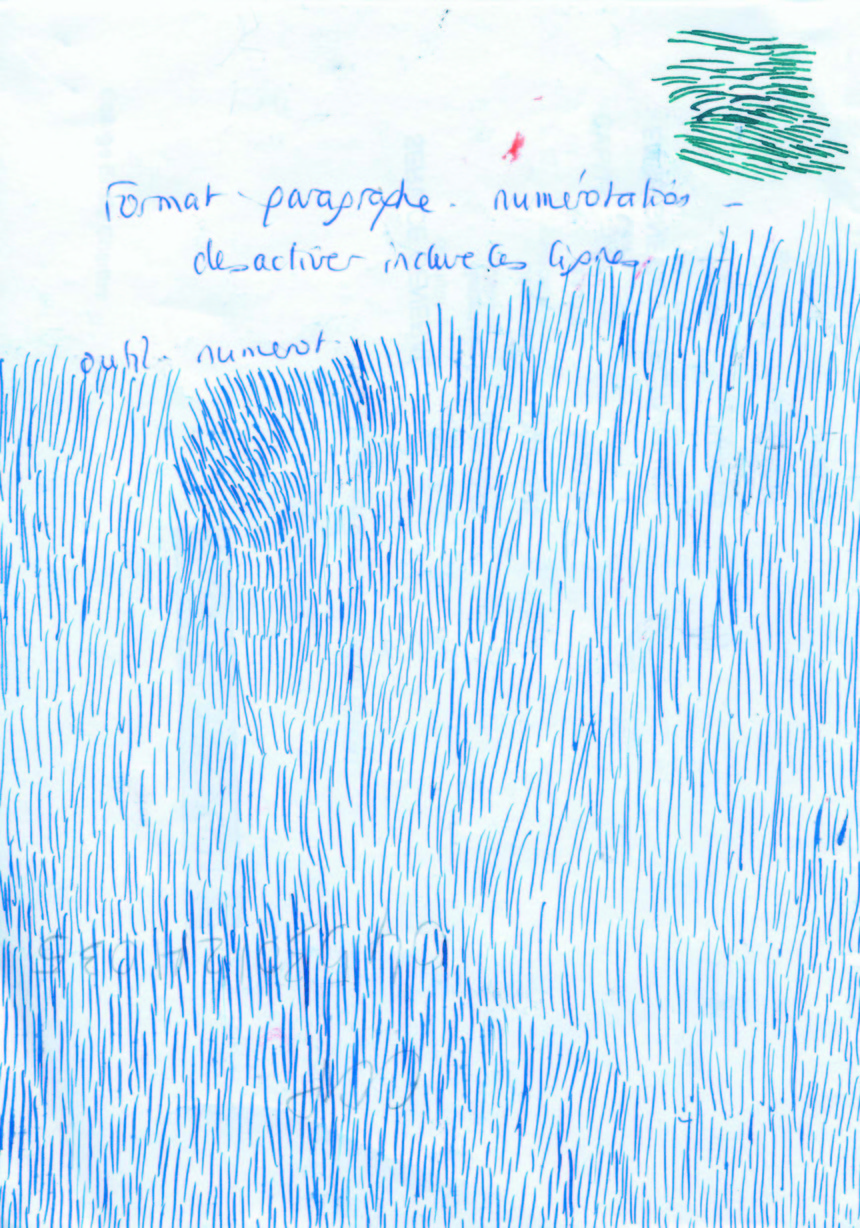 Format - paragraphe - numérotation -
desactiver inclure les lignes
outil - numerot.